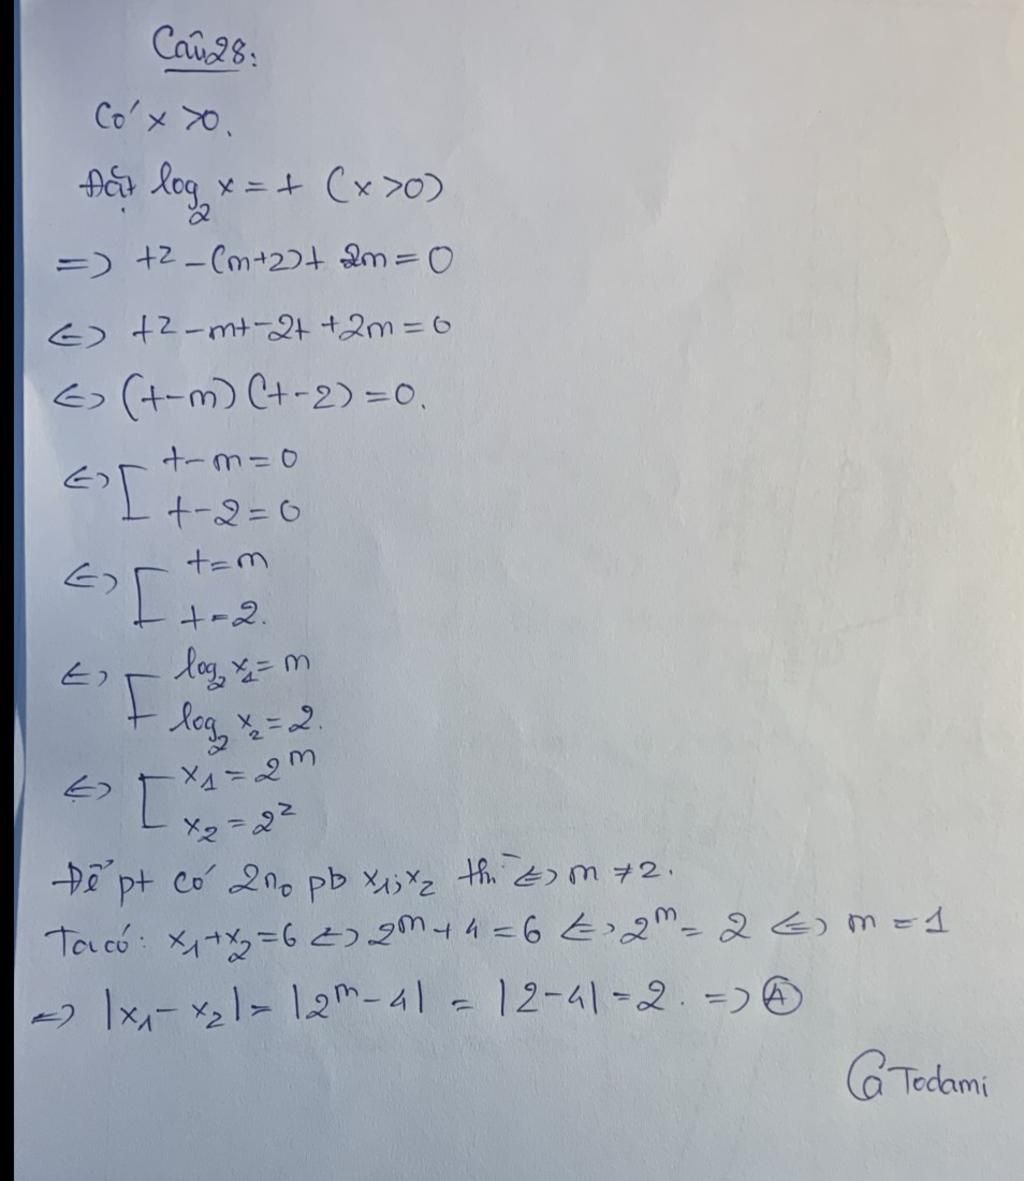 Câu 28:
Có x > 0.
Đặt log₂ x = t (x > 0)
=> t² - (m+2)t 2m = 0
<=> t² - mt - 2t + 2m = 0
<=> (t-m)(t-2) = 0.
<=> [ t - m = 0
t - 2 = 0
<=> [ t = m
t = 2.
<=> [ log₂ x₁ = m
log₂ x₂ = 2.
<=> [ x₁ = 2^m
x₂ = 2²
Để pt có 2n₀ pb x₁; x₂ thì <=> m ≠ 2.
Ta có: x₁ + x₂ = 6 <=> 2^m + 4 = 6 <=> 2^m = 2 <=> m = 1
=> |x₁ - x₂| = |2^m - 4| = |2 - 4| = 2. => Ⓐ
@Todami